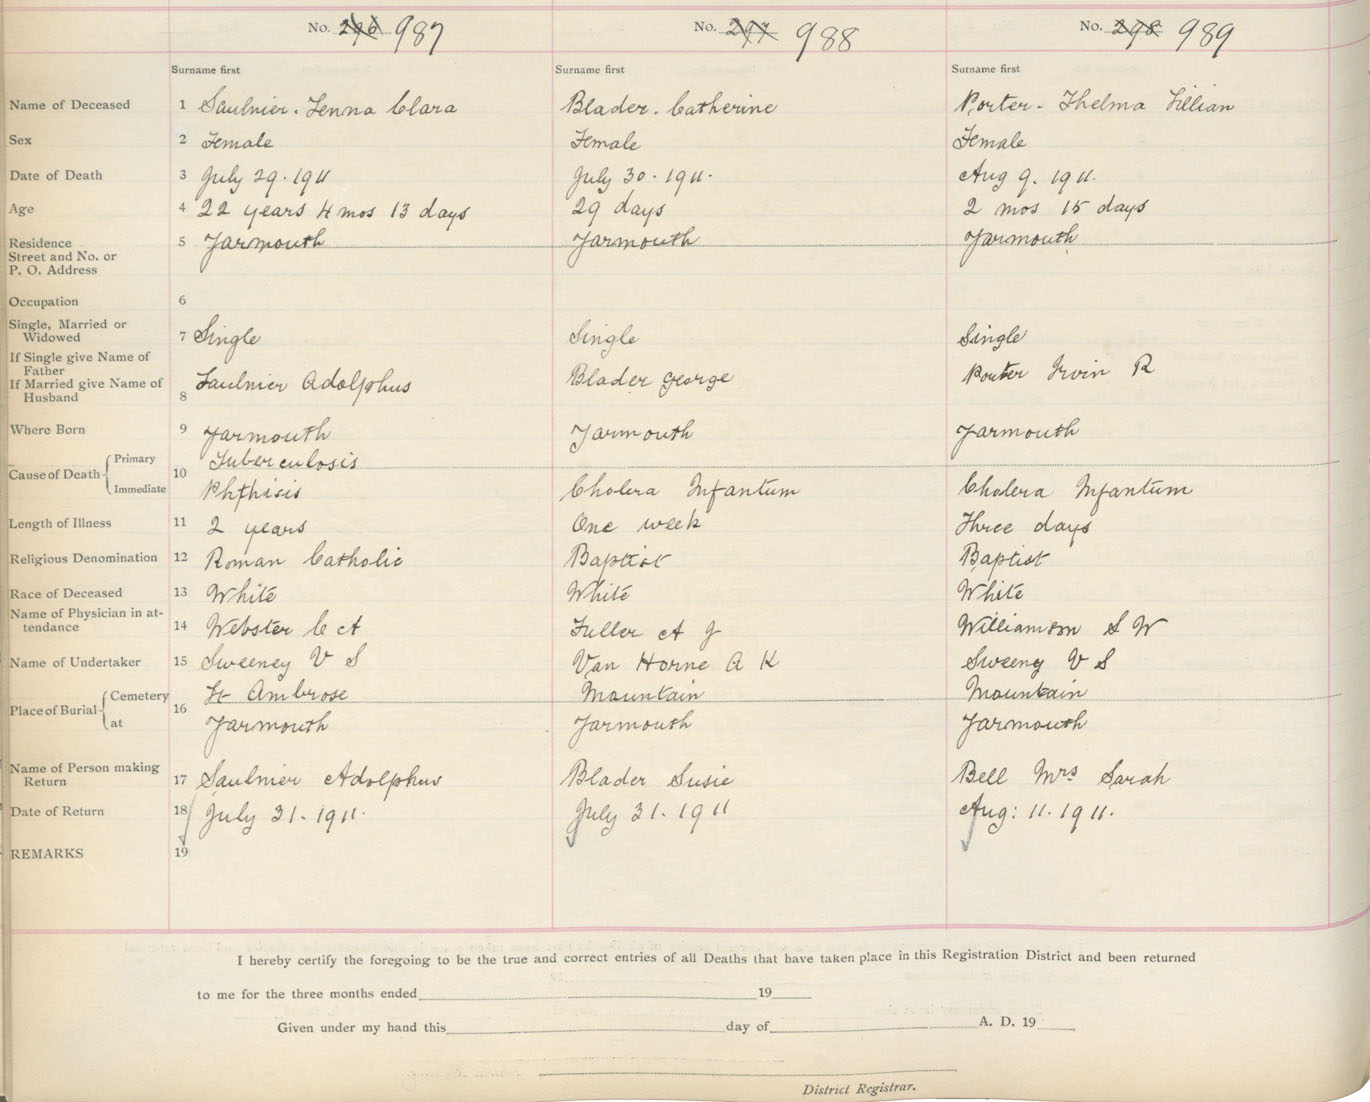 No. 296 987 No. 297 988 No. 298 989
Surname first Surname first Surname first
Name of Deceased 1 Saulnier. Lenna Clara Blader. Catherine Porter - Thelma Lillian
Sex 2 Female Female Female
Date of Death 3 July 29. 1911 July 30. 1911. Aug 9. 1911.
Age 4 22 years 4 mos 13 days 29 days 2 mos 15 days
Residence 5 Yarmouth Yarmouth Yarmouth
Street and No. or
P. O. Address
Occupation 6
Single, Married or
Widowed 7 Single Single Single
If Single give Name of
Father
If Married give Name of Saulnier Adolphus Blader George Porter Irvin R
Husband 8
Where Born 9 Yarmouth Yarmouth Yarmouth
Cause of Death Primary 10 Tuberculosis
Immediate Phthisis Cholera Infantum Cholera Infantum
Length of Illness 11 2 years One week Three days
Religious Denomination 12 Roman Catholic Baptist Baptist
Race of Deceased 13 White White White
Name of Physician in at-
tendance 14 Webster C A Fuller A J Williamson S W
Name of Undertaker 15 Sweeney V S Van Horne A K Sweeny V S
Place of Burial Cemetery 16 St Ambrose Mountain Mountain
at Yarmouth Yarmouth Yarmouth
Name of Person making
Return 17 Saulnier Adolphus Blader Susie Bell Mrs Sarah
Date of Return 18 July 31. 1911. July 31. 1911 Aug: 11. 1911.
REMARKS 19
I hereby certify the foregoing to be the true and correct entries of all Deaths that have taken place in this Registration District and been returned
to me for the three months ended 19
Given under my hand this day of A. D. 19
District Registrar.